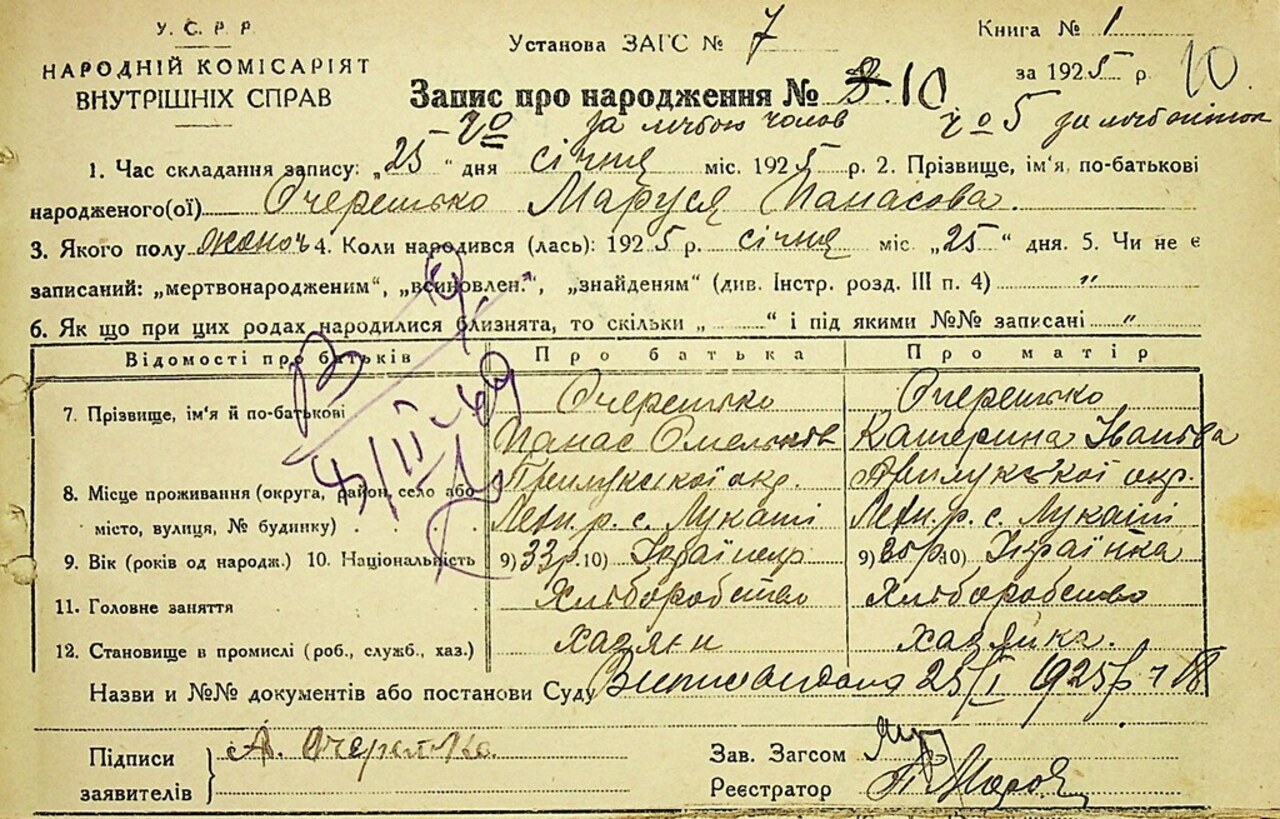 У. С. Р. Р.
НАРОДНІЙ КОМІСАРІЯТ
ВНУТРІШНІХ СПРАВ
Установа ЗАГС № 7
Книга № 1
за 1925 р. 10
Запис про народження № 10
за лічбою чолов № 5 за лічб
1. Час складання запису: „25“ дня січня міс. 1925 р. 2. Прізвище, ім'я, по-батькові
народженого(ої) Очеретько Маруся Панасова.
3. Якого полу жоноч 4. Коли народився (лась): 1925 р. січня міс. „25“ дня. 5. Чи не є
записаний: „мертвонародженим“, „всиновлен.“, „знайденям“ (див. Інстр. розд. III п. 4) „
6. Як що при цих родах народилися близнята, то скільки „ “ і під якими №№ записані „
Відомості про батьків Про батька Про матір
7. Прізвище, ім'я й по-батькові Очеретько Очеретько
Панас Омельков Катерина Іванова
8. Місце проживання (округа, район, село або Прилукської окр. Прилукської окр.
місто, вулиця, № будинку) р. с. Лукаші р. с. Лукаші
9. Вік (років од народж.) 10. Національність 9) 33 р. 10) Українець 9) 35 р. 10) Українка
11. Головне заняття Хліборобство Хліборобство
12. Становище в промислі (роб., служб., хаз.) хазяїн хазяйка.
Назви и №№ документів або постанови Суду 25/I 1925 р.
Підписи
заявителів
А. Очеретько.
Зав. Загсом
Реєстратор